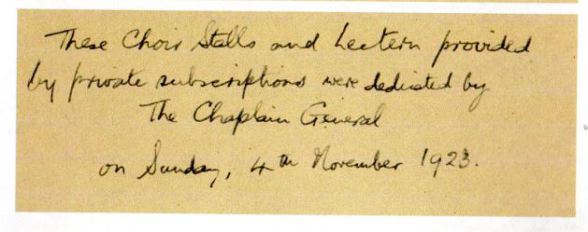 These Choir Stalls and Lectern provided
by private subscriptions were dedicated by
The Chaplain General
on Sunday, 4th November 1923.